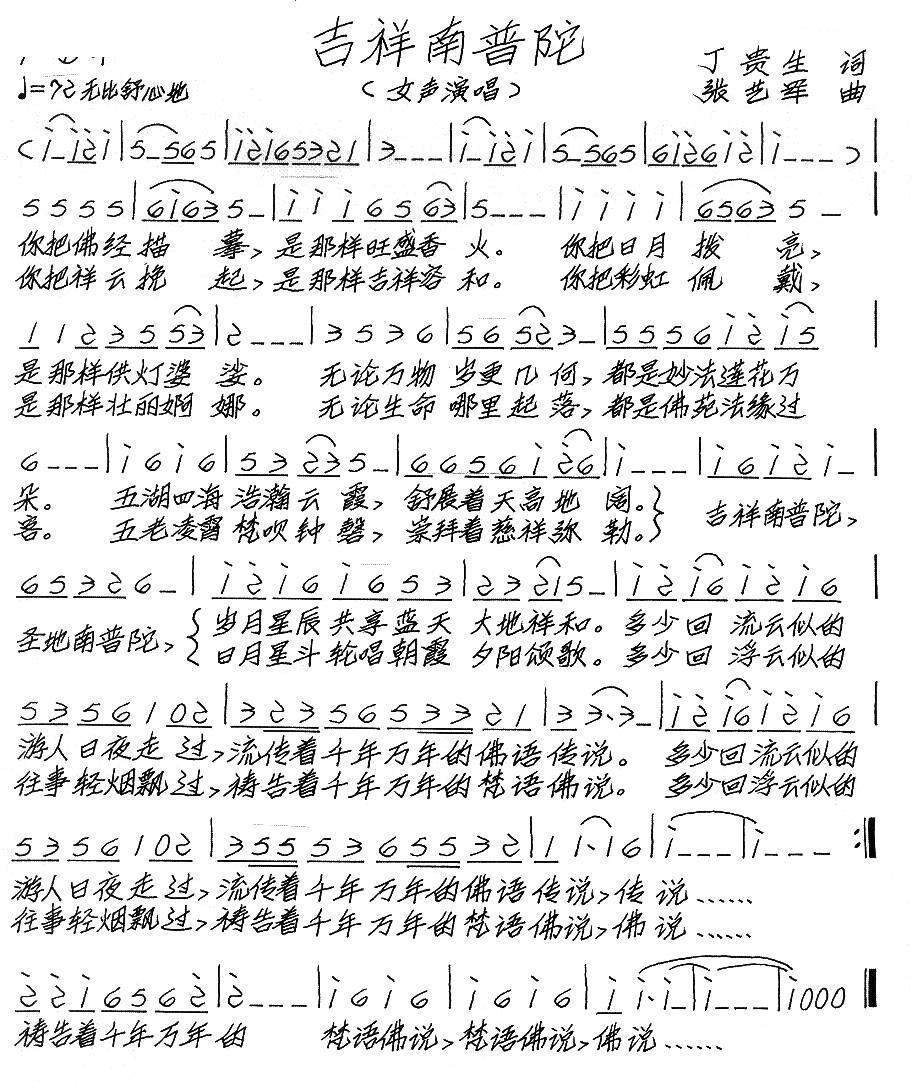 吉祥南普陀
（女声演唱）
丁贵生 词
张艺军 曲
♩=72 无比舒心地
(i_i2i|5_565|i2i65321|3---|i_i2i|5_565|6i26i2|i---)|
5555|6i635_|iii6563|5---|iiii|65635_|
你把佛经描摹，是那样旺盛香火。 你把日月拨亮，
你把祥云挽起，是那样吉祥容和。 你把彩虹佩戴，
1123553|2---|3536|56523_|5556i2i5|
是那样供灯婆娑。 无论万物岁更几何，都是妙法莲花万
是那样壮丽婀娜。 无论生命哪里起落，都是佛苑法缘过
6---|i6i6|53235_|6656i26|i---|i6i2i_|
朵。 五湖四海浩瀚云霞，舒展着天高地阔。} 吉祥南普陀，
客。 五老凌霄梵呗钟磬，崇拜着慈祥弥勒。}
65326_|i2i6i653|232i5_|i2i6i2i6|
圣地南普陀，{岁月星辰共享蓝天 大地祥和。多少回 流云似的
{日月星斗轮唱朝霞 夕阳颂歌。多少回 浮云似的
5356102|3235653321|33·3_|i2i6i2i6|
游人日夜走过，流传着千年万年的佛语传说。 多少回流云似的
往事轻烟飘过，祷告着千年万年的梵语佛说。 多少回浮云似的
5356102|3555365532|1i·i6|i---|i---:‖
游人日夜走过，流传着千年万年的佛语传说，传说……
往事轻烟飘过，祷告着千年万年的梵语佛说，佛说……
22i6562|2---|i6i6|i6i6|ii·i_|i---|i000‖
祷告着千年万年的 梵语佛说，梵语佛说，佛说……